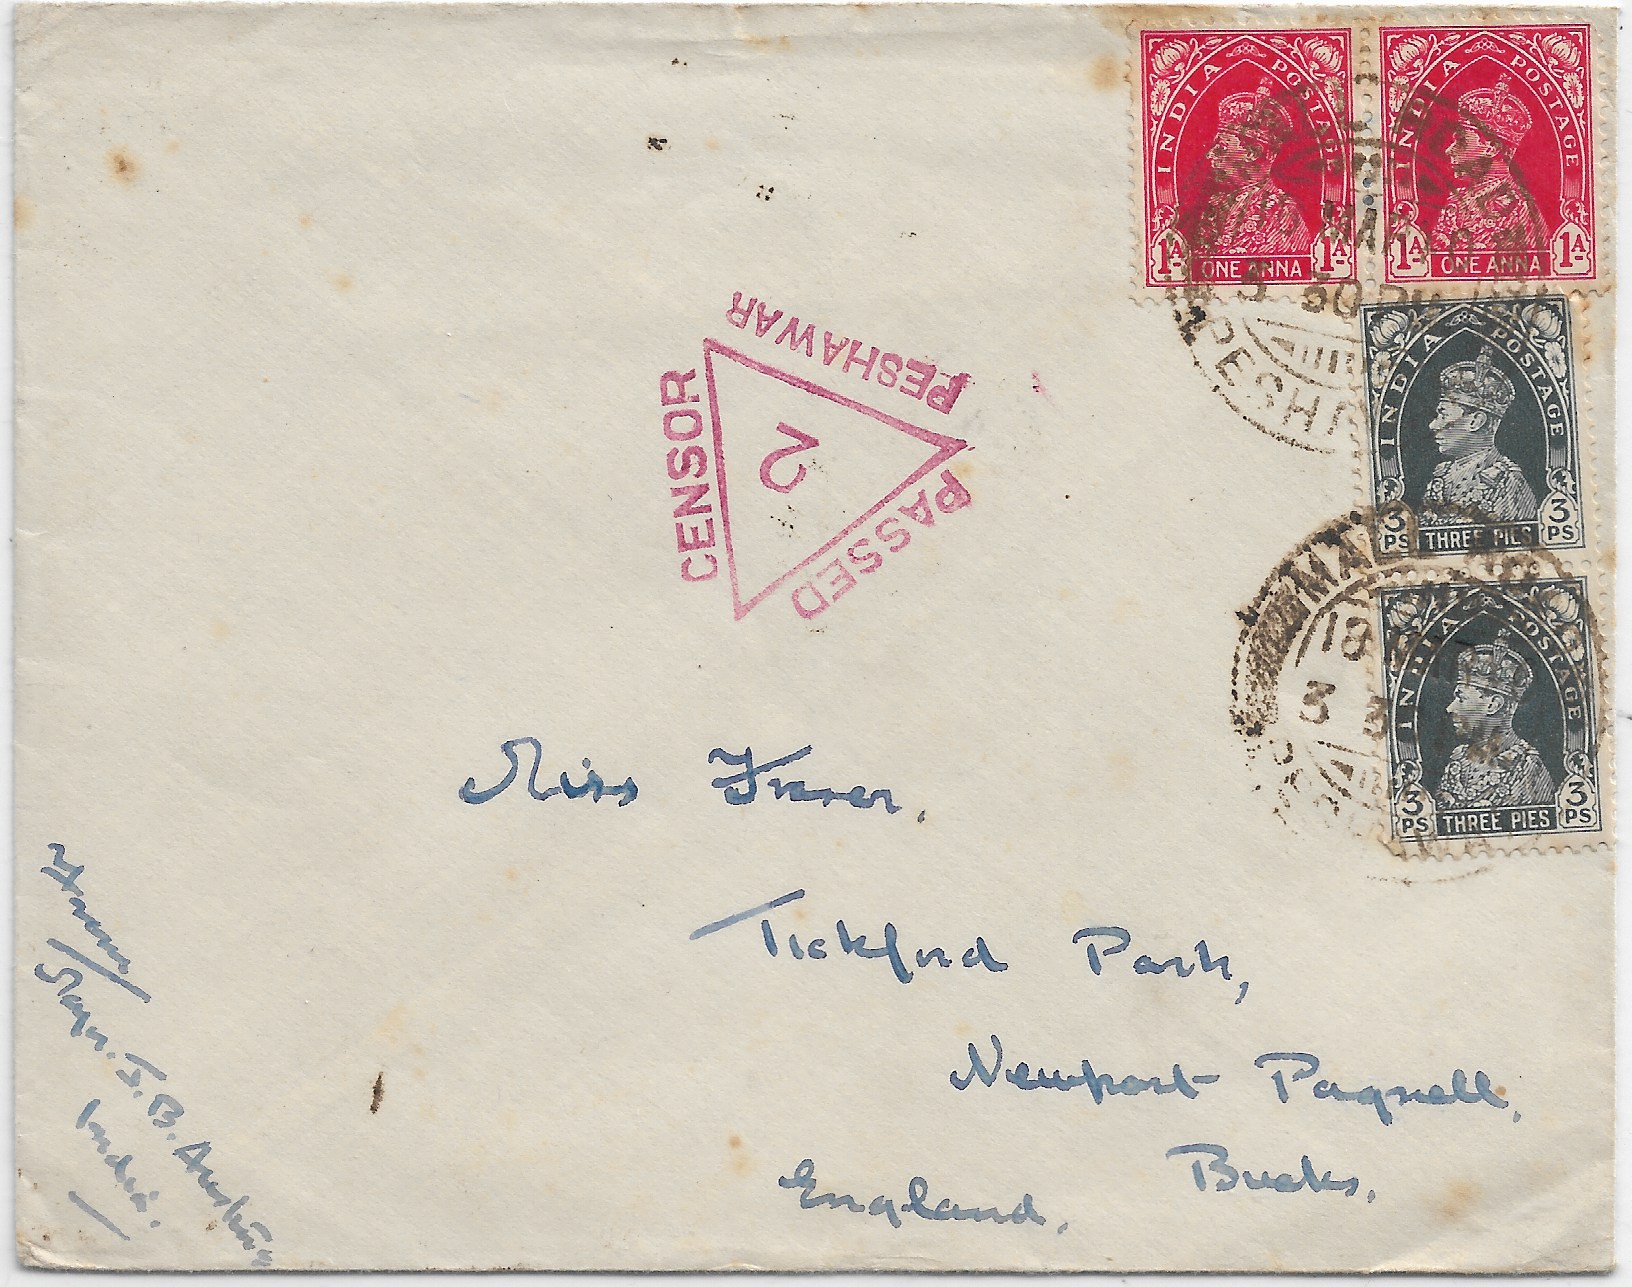 INDIA POSTAGE
1A ONE ANNA 1A
INDIA POSTAGE
1A ONE ANNA 1A
INDIA POSTAGE
3 PS THREE PIES 3 PS
INDIA POSTAGE
3 PS THREE PIES 3 PS
CENSOR
PESHAWAR
PASSED
2
Miss Fraser,
Tickford Park,
Newport Pagnell,
Bucks,
England.
From/
J. B.
India.